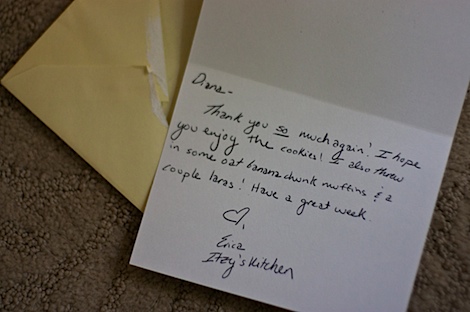 Diana-
Thank you so much again! I hope
you enjoy the cookies! I also threw
in some oat banana chunk muffins & a
couple laras! Have a great week.
♡,
Erica
Itzy's Kitchen